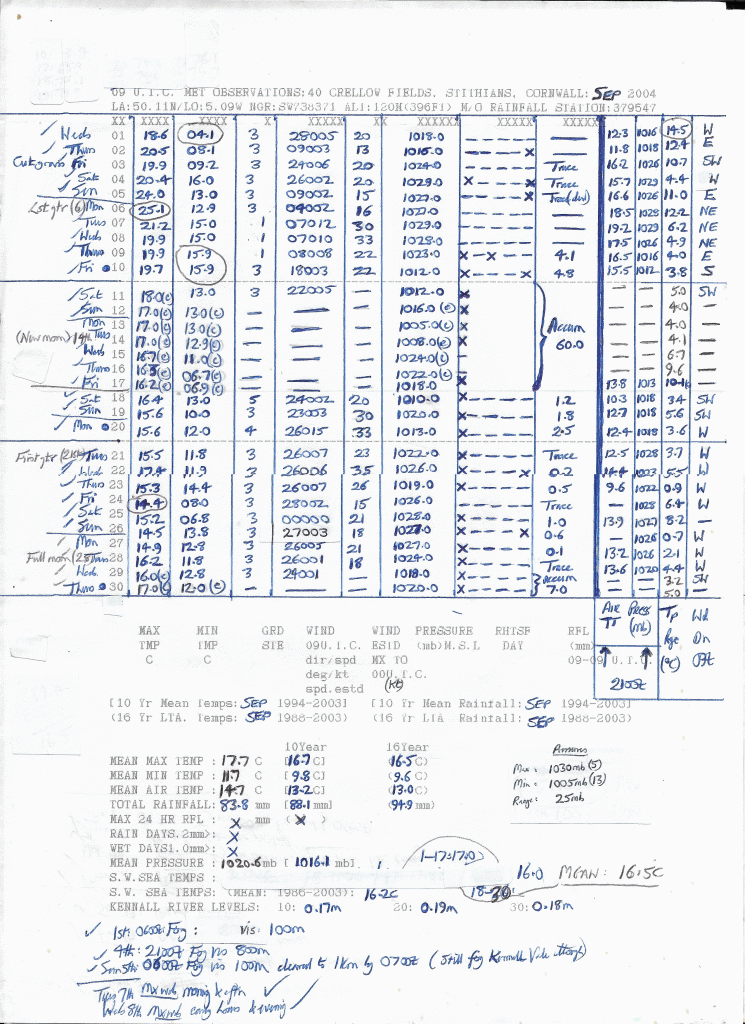 09 U.T.C. MET OBSERVATIONS:40 CRELLOW FIELDS, STITHIANS, CORNWALL: SEP 2004
LA:50.11N/LO:5.09W NGR:SW738371 ALT:120M(396FT) M/O RAINFALL STATION:379547
XX XXXX XXXX X XXXXX XX XXXXX XXXXX XXXXX
Weds 01 18.6 04.1 3 28005 20 1018.0 ----- — 12.3 1016 14.5 W
Thurs 02 20.5 08.1 3 09003 13 1016.0 ----x — 11.8 1018 12.4 E
Cut grass Fri 03 19.9 09.2 3 24006 20 1024.0 ----- Trace 16.2 1026 10.7 SW
Sat 04 20.4 16.0 3 26002 20 1029.0 x----x Trace 15.7 1029 4.4 W
Sun 05 24.0 13.0 3 09002 15 1027.0 x---- Trace(dew) 16.6 1026 11.0 E
Lst qtr (6) Mon 06 25.1 12.9 3 04002 16 1027.0 ----- — 18.5 1028 12.2 NE
Tues 07 21.2 15.0 1 07012 30 1029.0 ----- — 19.2 1029 6.2 NE
Weds 08 19.9 15.0 1 07010 33 1028.0 ----- — 17.5 1026 4.9 NE
Thurs 09 19.9 15.9 1 08008 22 1023.0 x-x--- 4.1 16.5 1016 4.0 E
Fri 10 19.7 15.9 3 18003 22 1012.0 x---x 4.8 15.5 1012 3.8 S
Sat 11 18.0(c) 13.0 3 22005 — 1012.0 x — — 5.0 SW
Sun 12 17.0(c) 13.0(c) — — — 1016.0(c) x — — 4.0 —
Mon 13 17.0(c) 13.0(c) — — — 1005.0(c) x Accum — — 4.0 —
(New moon) 14th Tues 14 17.0(c) 12.9(c) — — — 1008.0(c) x 60.0 — — 4.1 —
Weds 15 16.7(c) 11.0(c) — — — 1024.0(c) — — — 6.7 —
Thurs 16 16.3(c) 06.7(c) — — — 1022.0(c) — — — 9.6 —
Fri 17 16.2(c) 06.9(c) — — — 1018.0 x 13.8 1013 10.1 —
Sat 18 16.4 13.0 5 24002 20 1010.0 x----- 1.2 10.3 1018 3.4 SW
Sun 19 15.6 10.0 3 23003 30 1020.0 x----- 1.8 12.7 1018 5.6 SW
Mon 20 15.6 12.0 4 26015 33 1013.0 x----- 2.5 12.4 1018 3.6 W
First qtr (21st) Tues 21 15.5 11.8 3 26007 23 1022.0 ----- Trace 12.5 1028 3.7 W
Weds 22 17.4 11.9 3 26006 35 1026.0 x----x 0.2 14.4 1023 5.5 W
Thurs 23 15.3 14.4 3 26007 26 1019.0 x----- 0.5 9.6 1022 0.9 W
Fri 24 14.4 08.0 3 28002 15 1026.0 ----- Trace — 1028 6.4 W
Sat 25 15.2 06.8 3 00000 21 1028.0 x----- 1.0 13.9 1027 8.2 —
Sun 26 14.5 13.8 3 27003 18 1027.0 x----x 0.6 — 1026 0.7 W
Mon 27 14.9 12.8 3 26005 21 1027.0 x----- 0.1 13.2 1026 2.1 W
Full moon (28) Tues 28 16.2 11.8 3 26001 18 1024.0 x----- Trace 13.6 1020 4.4 W
Weds 29 16.0(c) 12.8 3 24001 1018.0 x----- accum — — 3.2 SW
Thurs 30 17.0(c) 12.0(c) — — — 1020.0 x----- 7.0 — — 5.0 —
MAX MIN GRD WIND WIND PRESSURE RHISF RFL
TMP TMP STE 09U.T.C. ESTD (mb)M.S.L DAY (mm)
C C dir/spd MX TO 09-09 U.T.C.
deg/kt 00U.T.C.
spd.estd (kt)
Air TT Press (mb) Tp Rge (°C) Wd Dn 09Z
2100Z
[10 Yr Mean Temps: SEP 1994-2003] [10 Yr Mean Rainfall: SEP 1994-2003]
(16 Yr LTA. Temps: SEP 1988-2003) (16 Yr LTA Rainfall: SEP 1988-2003)
10Year 16Year
MEAN MAX TEMP : 17.7 C [16.7 C] (16.5 C)
MEAN MIN TEMP : 11.7 C [9.8 C] (9.6 C)
MEAN AIR TEMP : 14.7 C [13.2 C] (13.0 C)
TOTAL RAINFALL: 83.8 mm [88.1 mm] (94.9 mm)
Pressures
Max: 1030mb (5)
Min: 1005mb (13)
Range: 25mb
MAX 24 HR RFL : x mm ( x )
RAIN DAYS.2mm>: x
WET DAYS1.0mm>: x
MEAN PRESSURE : 1020.6 mb [ 1016.1 mb]
1-17: 17.0
S.W.SEA TEMPS : 16.0 MEAN: 16.5C
S.W. SEA TEMPS: (MEAN: 1986-2003): 16.2C 18-30
KENNALL RIVER LEVELS: 10: 0.17m 20: 0.19m 30: 0.18m
1st: 0600z Fog: Vis: 100m
4th: 2100Z Fog Vis 800m
Sun 5th: 0600Z Fog vis 100m cleared to 1km by 0700Z (Still fog Kennall Vale though)
Tues 7th Mx wnd morning & aftn
Weds 8th Mx wnd early hours & evening